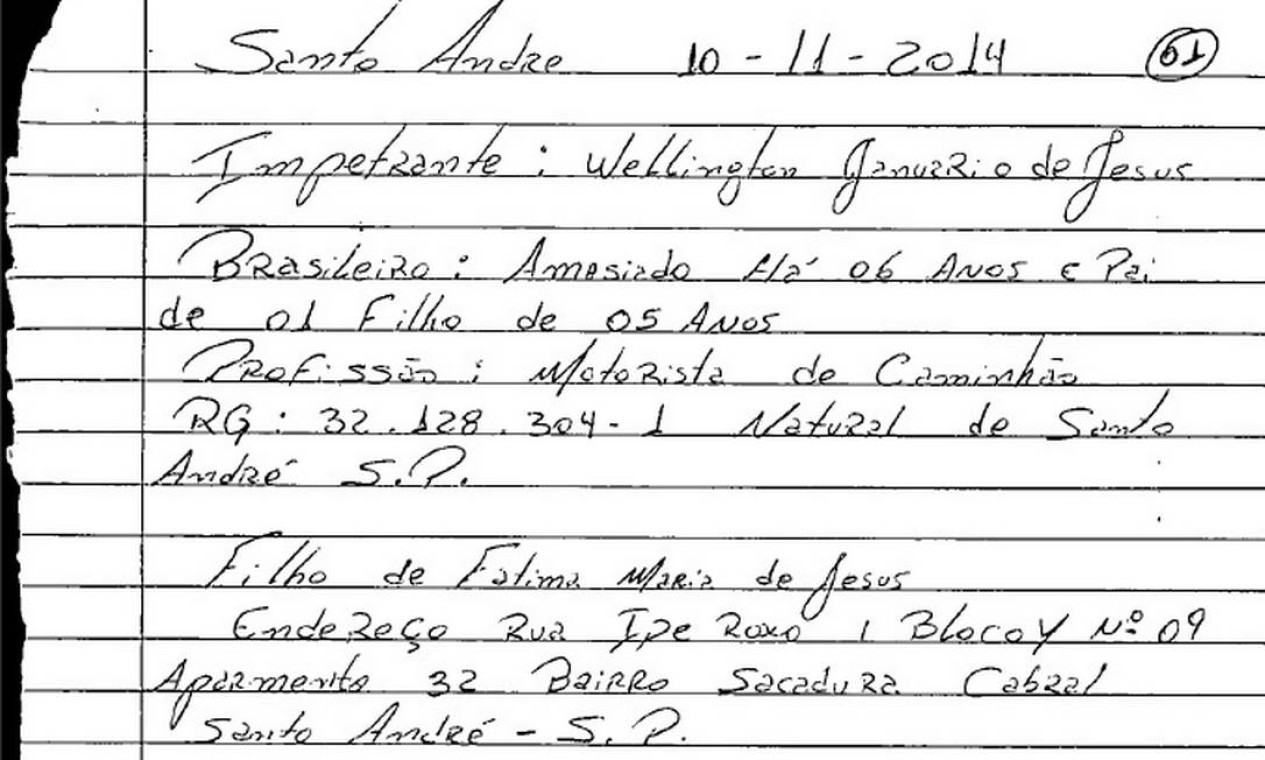 Santo Andre 10-11-2014 01
Impetrante: Wellington Januario de Jesus
Brasileiro: Amasiado Há 06 Anos e Pai
de 01 Filho de 05 Anos
Profissão: Motorista de Caminhão
RG: 32.128.304-1 Natural de Santo
André S.P.
Filho de Fatima Maria de Jesus
Endereço Rua Ipe Roxo, Bloco Y Nº 09
Aparmento 32 Bairro Sacadura Cabral
Santo André - S.P.